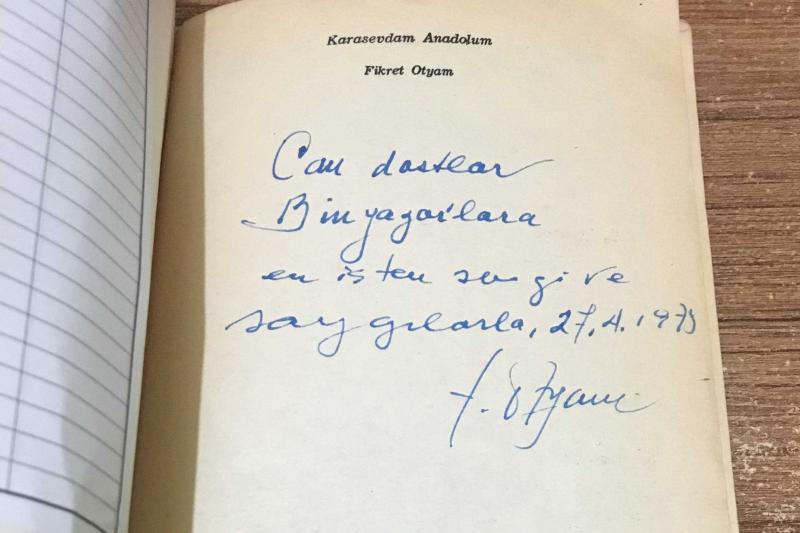 Karasevdam Anadolum
Fikret Otyam
Can dostlar
en içten sevgi ve
saygılarla, 27.4.197
F. Otyam